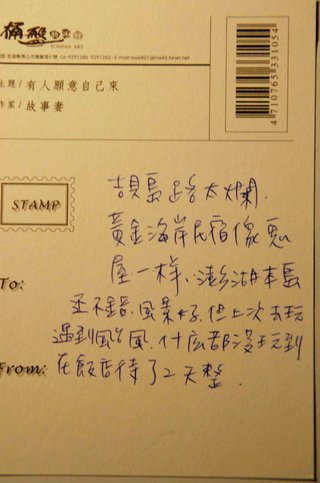 痛風
TONFAN ART
06-9291286 9291262 E-mail:love501@ms43.hinet.net
主題/有人願意自己來
作家/故事妻
4710765331054
STAMP
To:
From:
吉貝島路太爛.
黃金海岸民宿像鬼
屋一样,澎湖本島
並不錯.風景好,但上次去玩
遇到颱風.什庅都沒玩到
在飯店待了2天整.